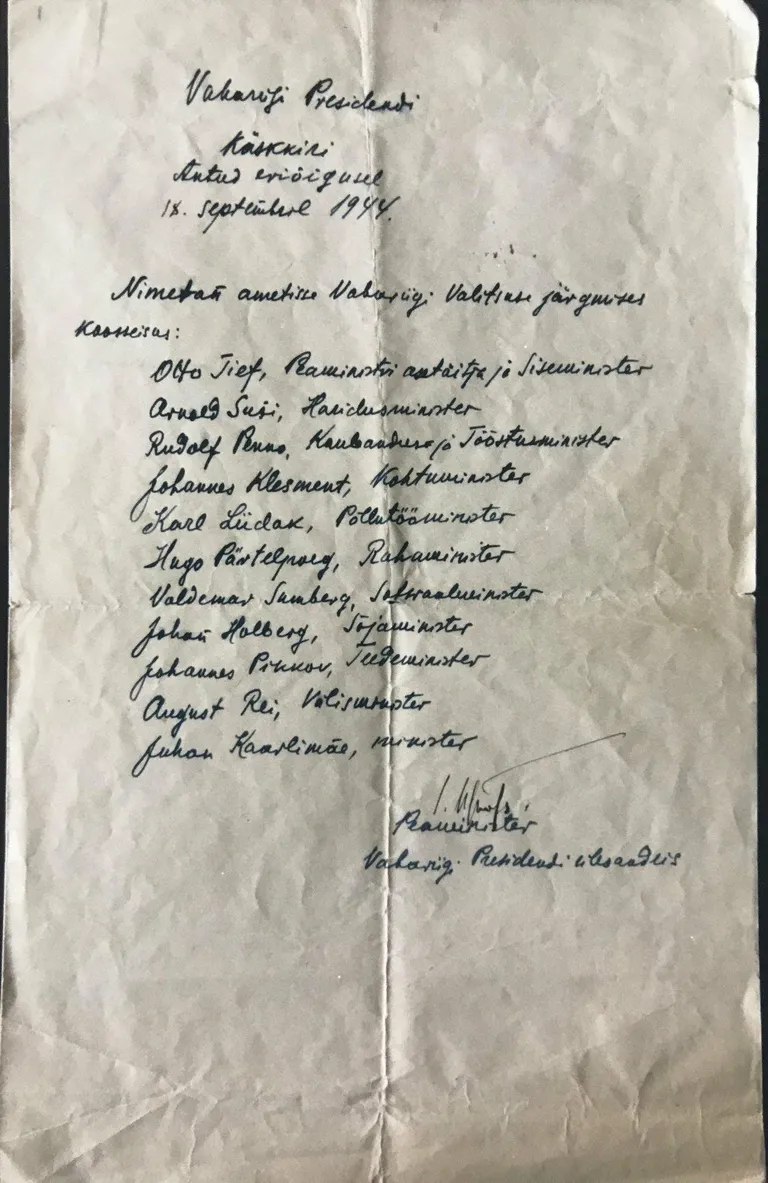 Vabariigi Presidendi
Käskkiri
Antud eriõigusel
18. septembril 1944.
Nimetan ametisse Vabariigi Valitsuse järgmises
koosseisus:
Otto Tief, Peaministri asetäitja ja Siseminister
Arnold Susi, Haridusminister
Rudolf Penno, Kaubandus- ja Tööstusminister
Johannes Klesment, Kohtuminister
Karl Liidak, Põllutööminister
Hugo Pärtelpoeg, Rahaminister
Voldemar Sumberg, Sotsiaalminister
Juhan Holberg, Sõjaminister
Johannes Pikkov, Teedeminister
August Rei, Välisminister
Juhan Kaarlimäe, minister
J. Uluots.
Peaminister
Vabariigi Presidendi ülesandeis